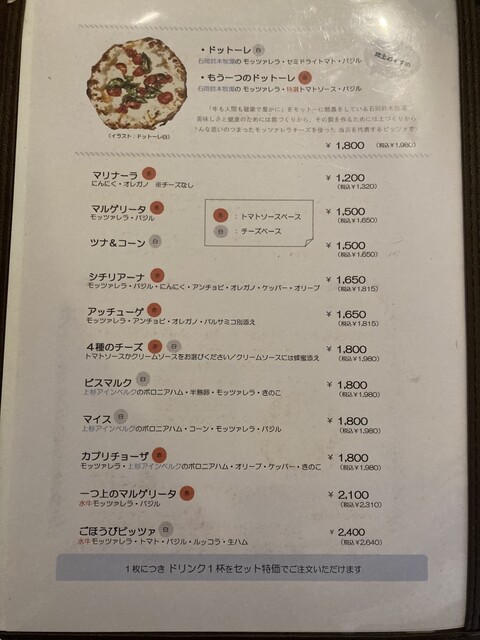 ・ドットーレ 白
石岡鈴木牧場の モッツァレラ・セミドライトマト・バジル
・もう一つのドットーレ 赤
石岡鈴木牧場の モッツァレラ・特選トマトソース・バジル
(イラスト：ドットーレ白)
「牛も人間も健康で豊かに」をモットーに酪農をしている石岡鈴木牧場
美味しさと健康のためには餌づくりから、その餌を作るためには土づくりから
そんな思いのつまったモッツァレラチーズを使った 当店を代表するピッツァ
¥ 1,800 (税込¥1,980)
マリナーラ 赤 ¥ 1,200
にんにく・オレガノ ※チーズなし (税込¥1,320)
マルゲリータ 赤 ¥ 1,500
モッツァレラ・バジル (税込¥1,650)
赤 ：トマトソースベース
白 ：チーズベース
ツナ＆コーン 白 ¥ 1,500
(税込¥1,650)
シチリアーナ 赤 ¥ 1,650
モッツァレラ・バジル・にんにく・アンチョビ・オレガノ・ケッパー・オリーブ (税込¥1,815)
アッチューゲ 赤 ¥ 1,650
モッツァレラ・アンチョビ・オレガノ・バルサミコ別添え (税込¥1,815)
４種のチーズ 赤 白 ¥ 1,800
トマトソースかクリームソースをお選びください／クリームソースには蜂蜜添え (税込¥1,980)
ビスマルク 白 ¥ 1,800
上杉アインベルクのボロニアハム・半熟卵・モッツァレラ・きのこ (税込¥1,980)
マイス 白 ¥ 1,800
上杉アインベルクのボロニアハム・コーン・モッツァレラ・バジル (税込¥1,980)
カプリチョーザ 赤 ¥ 1,800
モッツァレラ・上杉アインベルクのボロニアハム・オリーブ・ケッパー・きのこ (税込¥1,980)
一つ上のマルゲリータ 赤 ¥ 2,100
水牛モッツァレラ・バジル (税込¥2,310)
ごほうびピッツァ 白 ¥ 2,400
水牛モッツァレラ・トマト・バジル・ルッコラ・生ハム (税込¥2,640)
１枚につき ドリンク１杯をセット特価でご注文いただけます